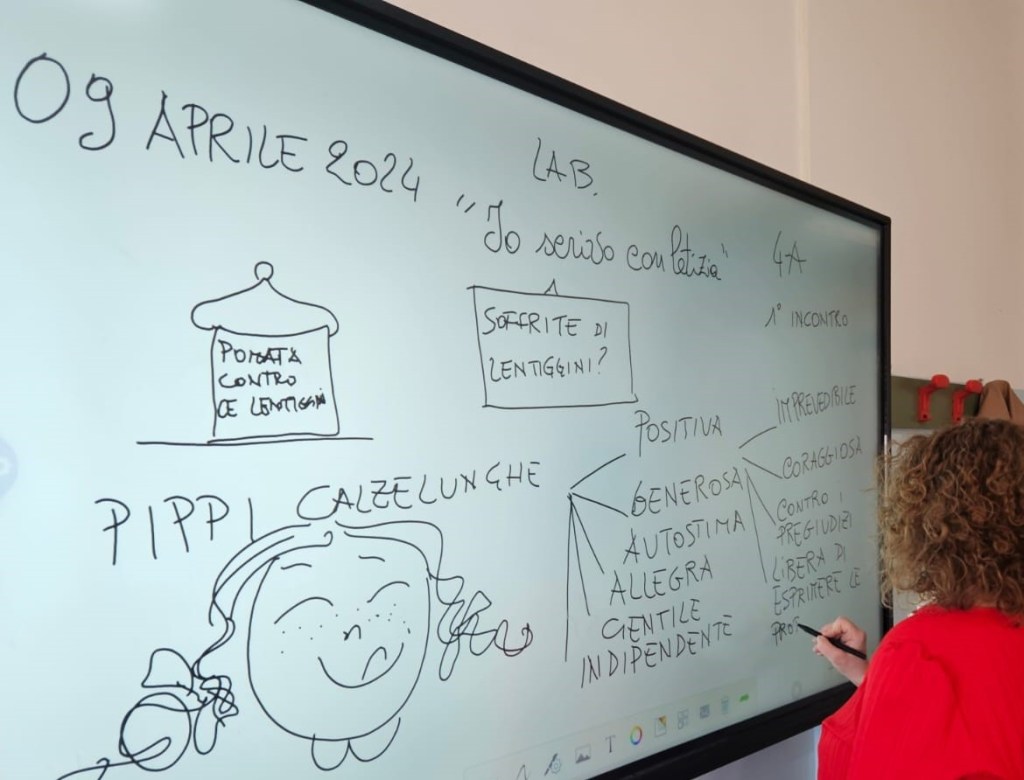 09 APRILE 2024
LAB.
"Io scrivo con letizia"
4A
1° INCONTRO
POMATA
CONTRO
LE LENTIGGINI
SOFFRITE DI
LENTIGGINI?
PIPPI CALZELUNGHE
POSITIVA
GENEROSA
AUTOSTIMA
ALLEGRA
GENTILE
INDIPENDENTE
IMPREVEDIBILE
CORAGGIOSA
CONTRO I
PREGIUDIZI
LIBERA DI
ESPRIMERE LE